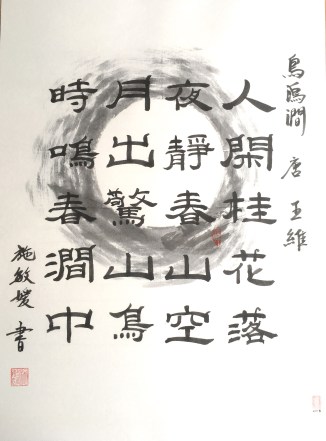 鳥鳴澗 唐 王維
人閑桂花落
夜靜春山空
月出驚山鳥
時鳴春澗中
施敏媛 書